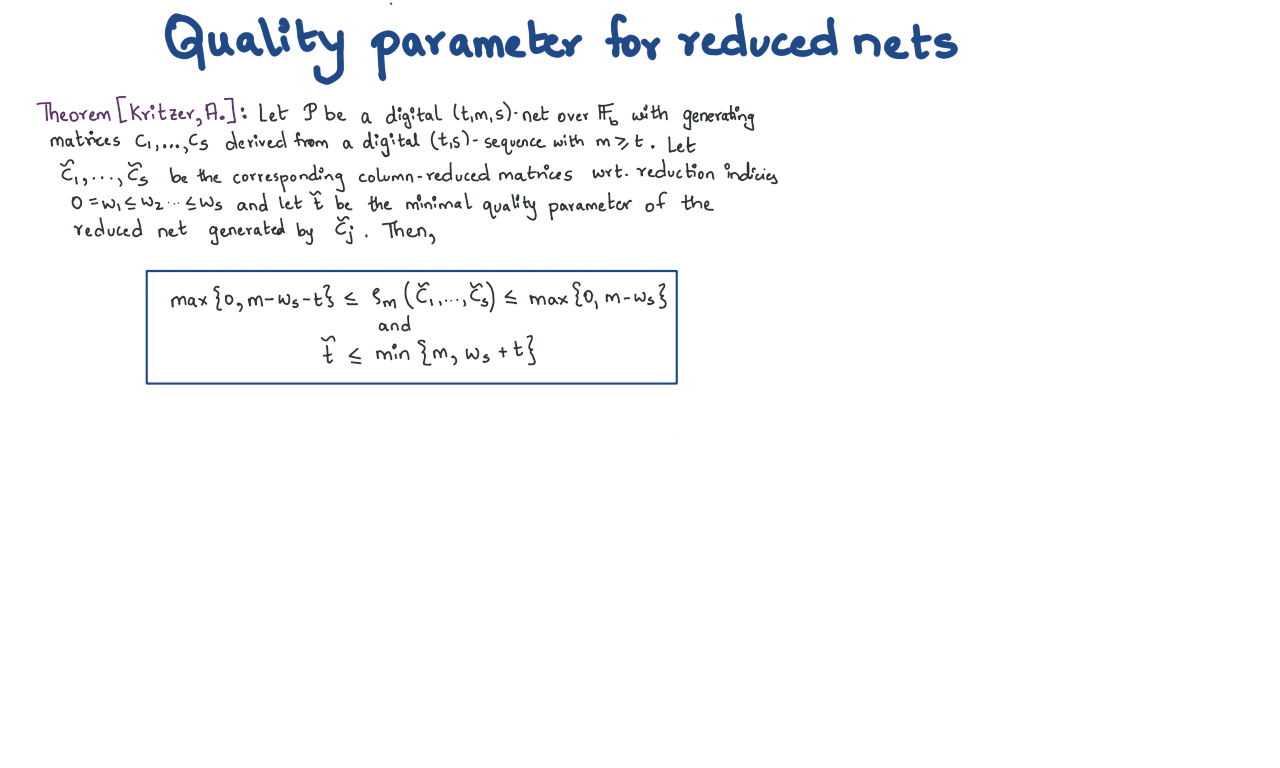 Quality parameter for reduced nets
Theorem [Kritzer, A.]: Let P be a digital (t,m,s)-net over 𝔽_b with generating
matrices C₁,...,C_s derived from a digital (t,s)-sequence with m ≥ t. Let
C̃₁,...,C̃_s be the corresponding column-reduced matrices wrt. reduction indicies
0 = w₁ ≤ w₂ ... ≤ w_s and let t̃ be the minimal quality parameter of the
reduced net generated by C̃_j. Then,
max{0, m-w_s-t} ≤ ρ_m (C̃₁,...,C̃_s) ≤ max{0, m-w_s}
and
t̃ ≤ min {m, w_s + t}